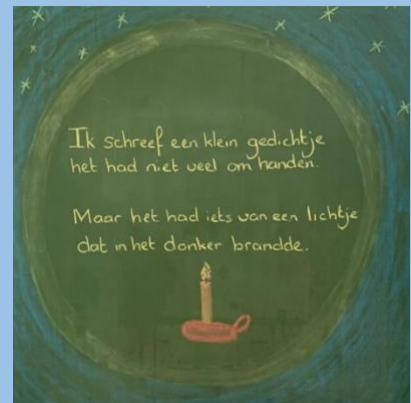 Ik schreef een klein gedichtje
het had niet veel om handen.
Maar het had iets van een lichtje
dat in het donker brandde.